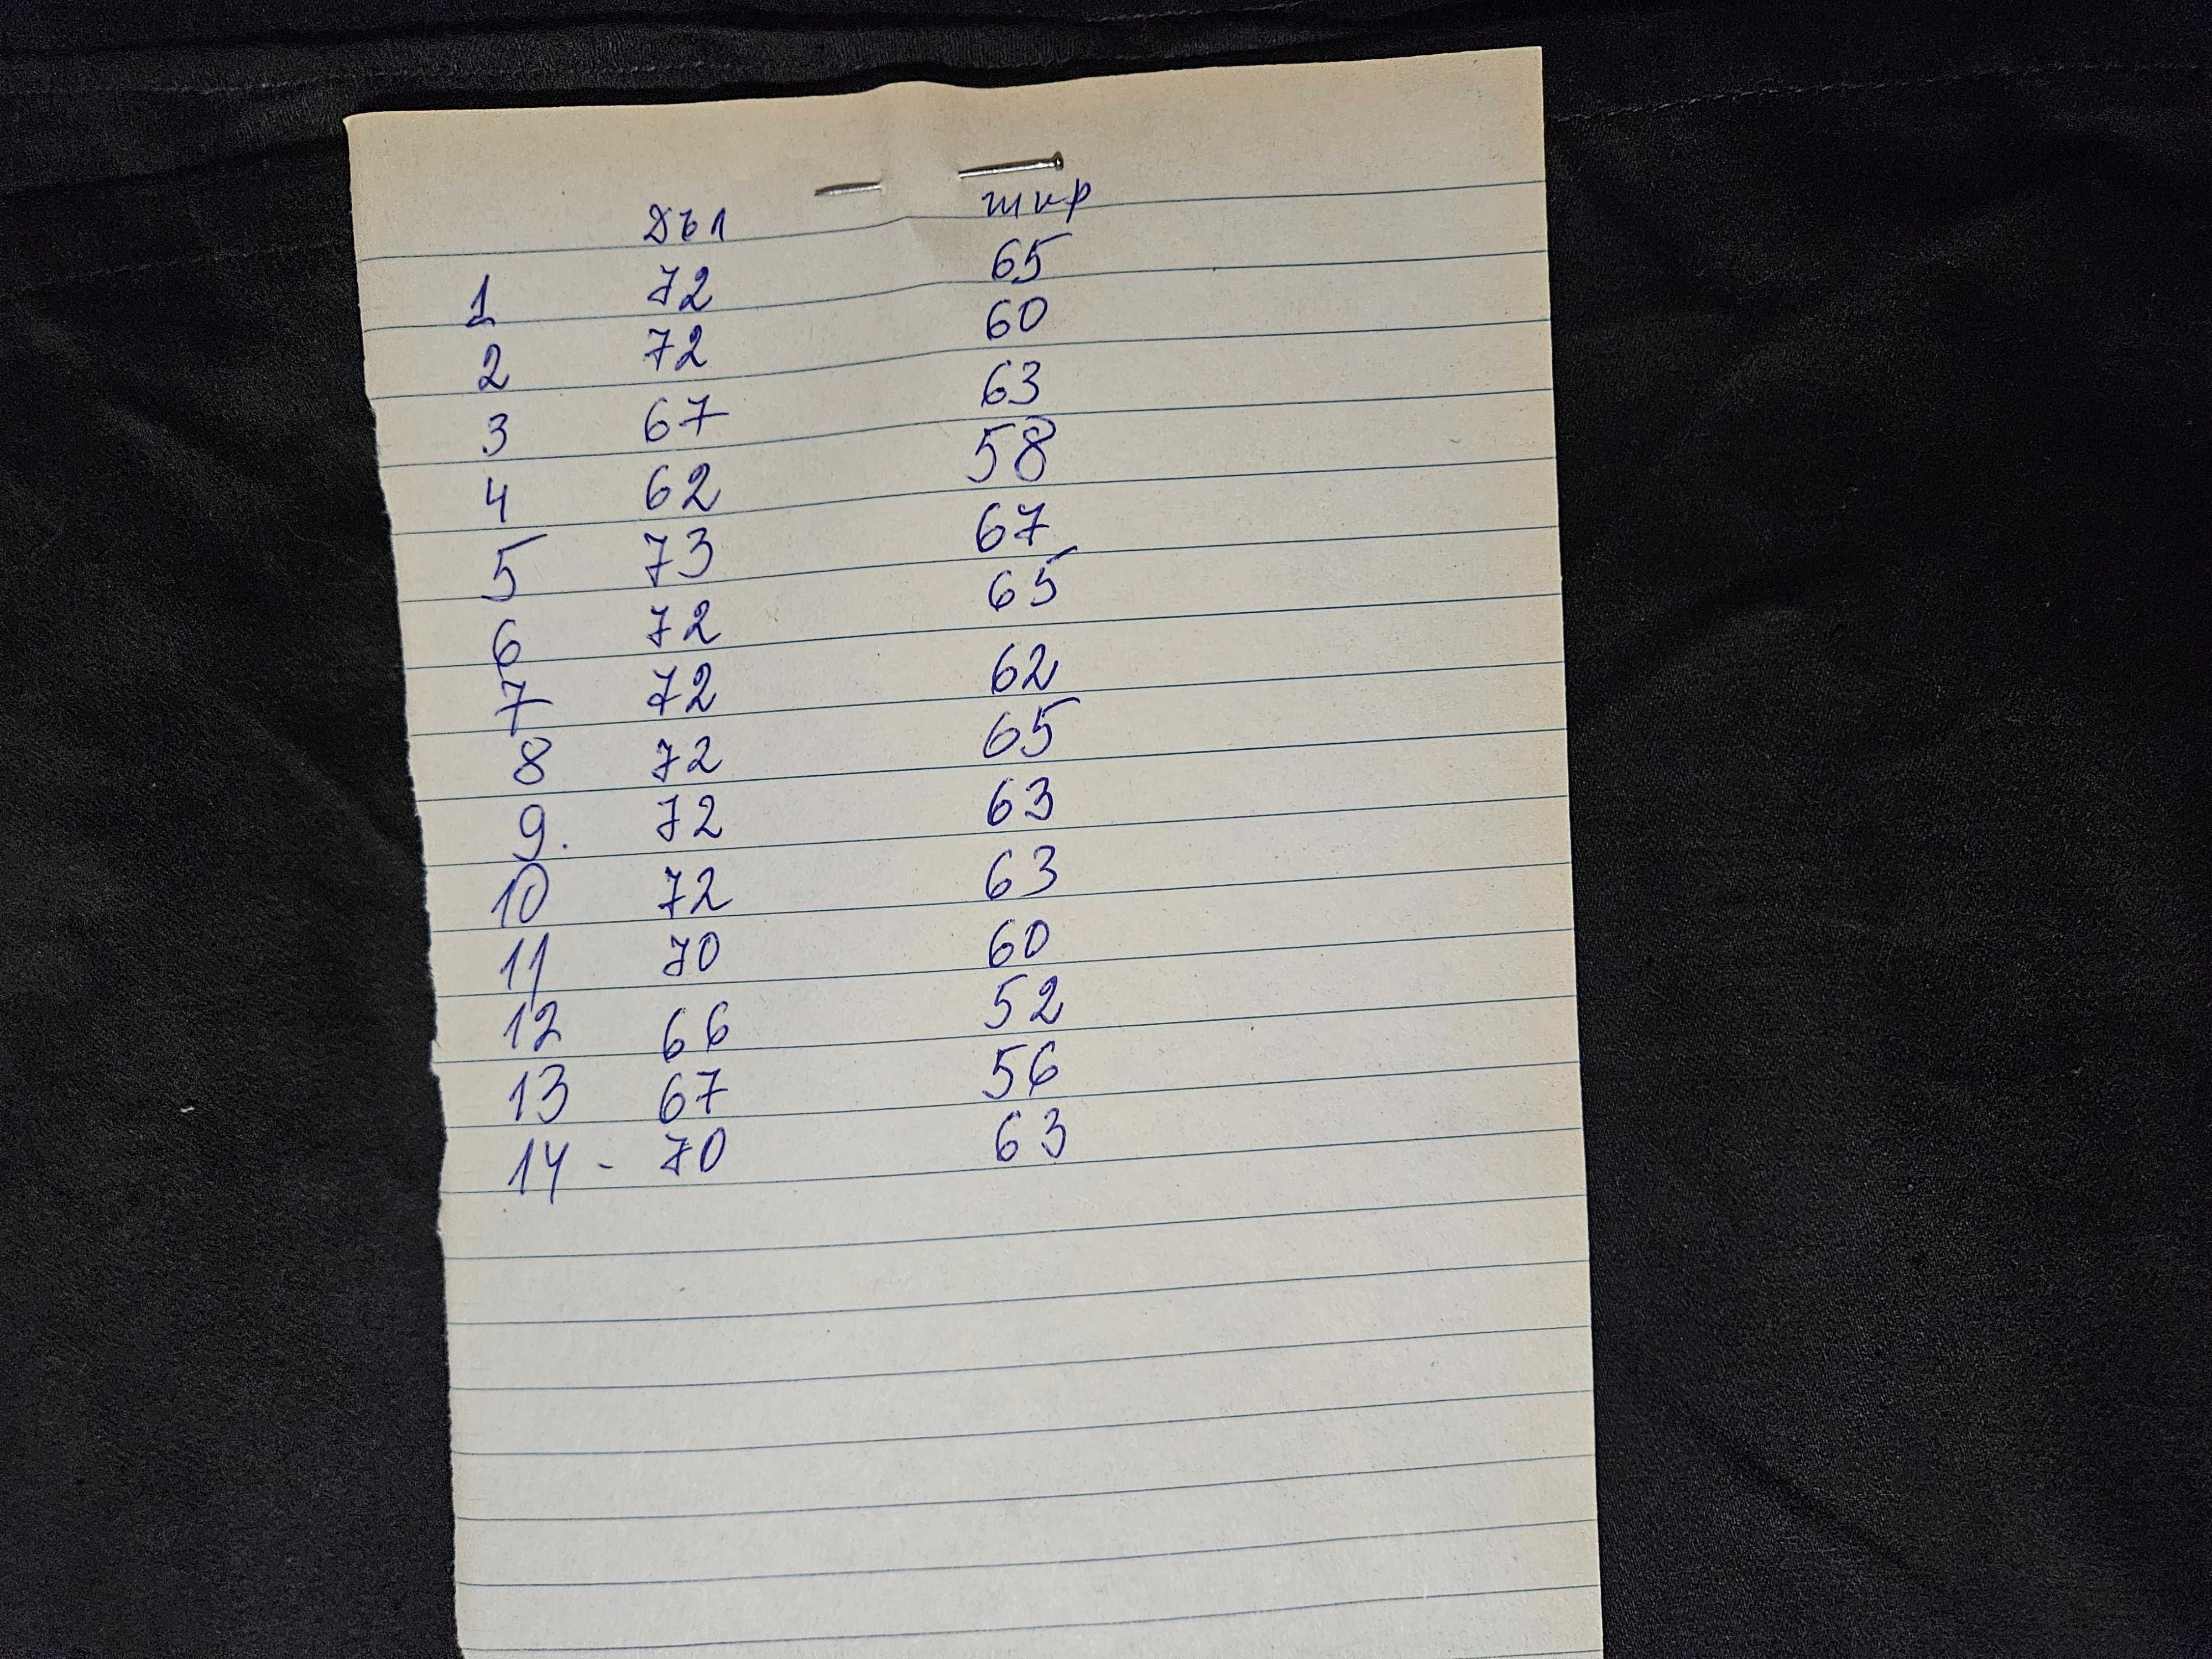 дъл шир
1 72 65
2 72 60
3 67 63
4 62 58
5 73 67
6 72 65
7 72 62
8 72 65
9. 72 63
10 72 63
11 70 60
12 66 52
13 67 56
14 - 70 63